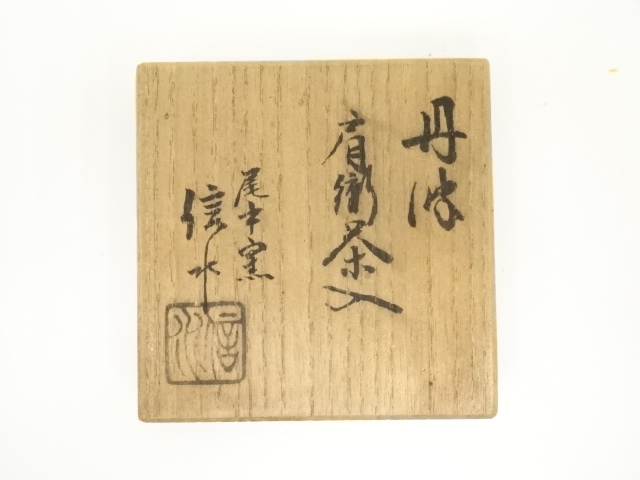 丹波
肩衝茶入
尾中窯
信水